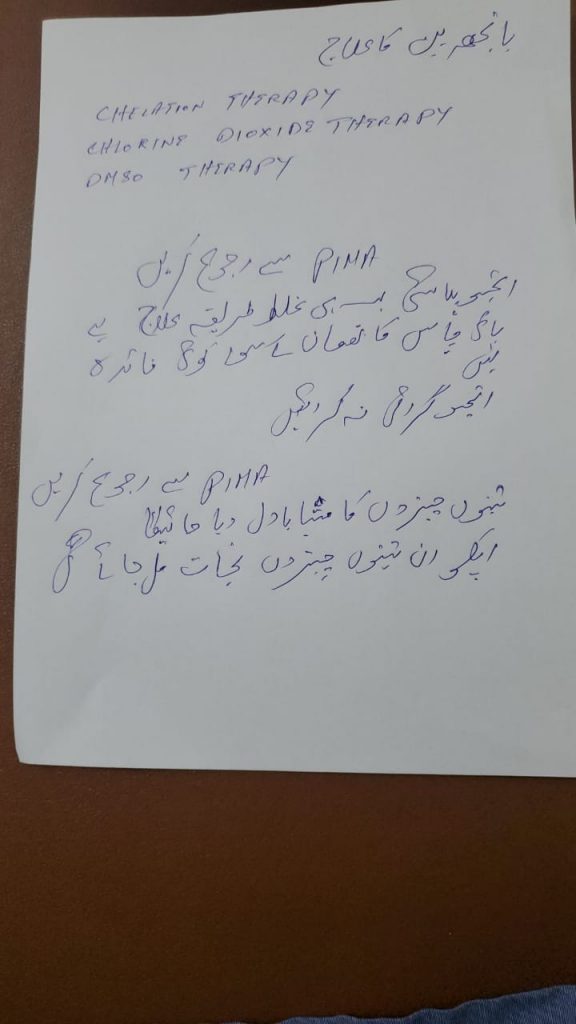 بانجھ پن کا علاج
CHELATION THERAPY
CHLORINE DIOXIDE THERAPY
DMSO THERAPY
PIMA سے رجوع کریں
انجیو پلاسٹی بہت ہی غلط طریقہ علاج ہے
بائی پاس کا نقصان کے سوا کوئی فائدہ
نہیں
انجیو گرافی نہ کرائیں
PIMA سے رجوع کریں
تینوں چیزوں کا متبادل دیا جائیگا
آپکو ان تینوں چیزوں نجات مل جائے گی